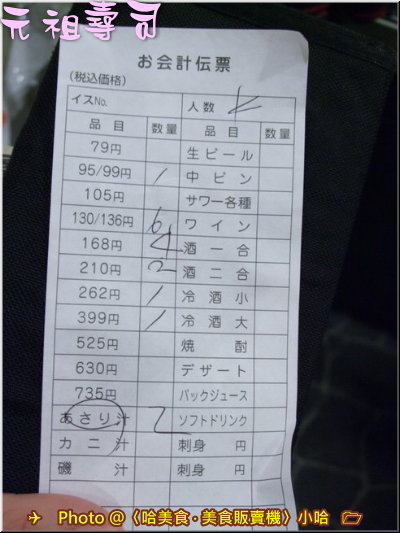 元祖壽司
お会計伝票
(税込価格)
イスNo. 人数
品目 数量 品目 数量
79円 生ビール
95/99円 / 中ビン
105円 サワー各種
130/136円 6 ワイン
168円 4 酒一合
210円 2 酒二合
262円 / 冷酒小
399円 / 冷酒大
525円 焼酎
630円 デザート
735円 パックジュース
あさり汁 2 ソフトドリンク
カニ汁 刺身 円
磯汁 刺身 円
Photo @〈哈美食·美食販賣機〉小哈